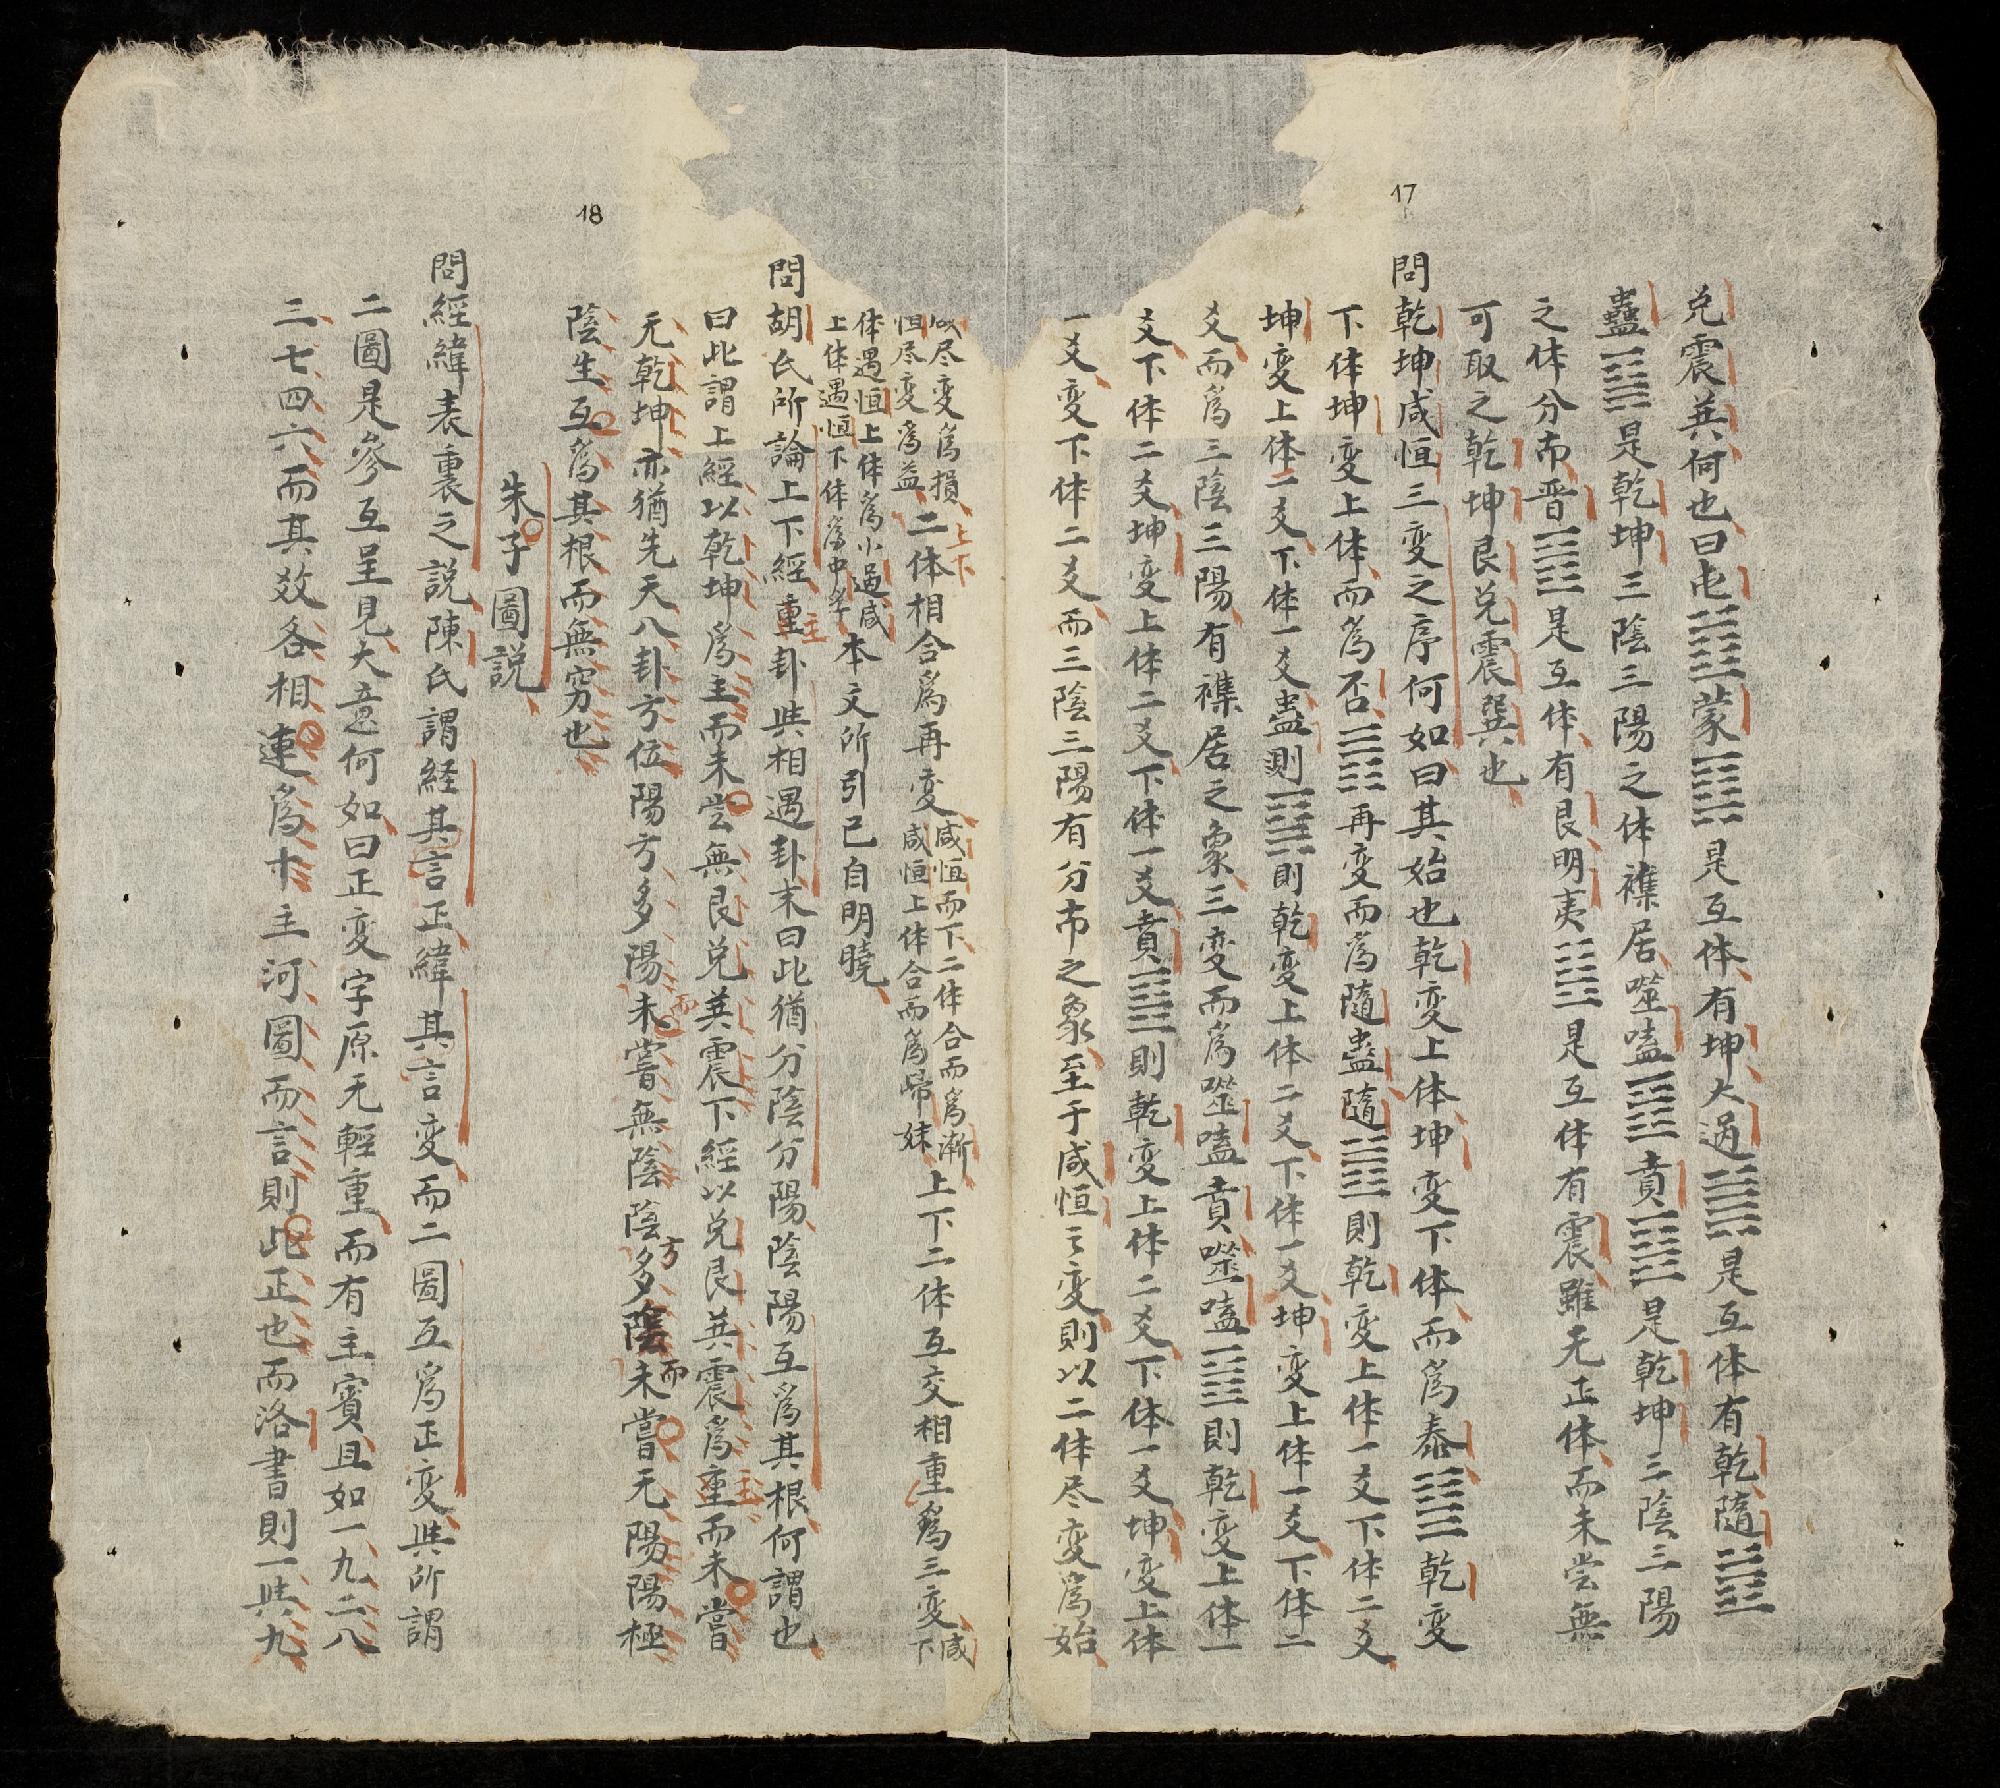 17
兌震巽何也曰屯䷂蒙䷃是互体有坤大過䷛是互体有乾隨䷐
蠱䷑是乾坤三陰三陽之体襍居噬嗑䷔賁䷕是乾坤三陰三陽
之体分布晋䷢是互体有艮明夷䷣是互体有震雖无正体而未尝無
可取之乾坤艮兌震巽也
問乾坤咸恒三变之序何如曰其始也乾变上体坤变下体而爲泰䷊乾变
下体坤变上体而爲否䷋再变而爲隨蠱隨䷐則乾变上体一爻下体二爻
坤变上体二爻下体一爻蠱則䷑則乾变上体二爻下体一爻坤变上体一爻下体二
爻而爲三陰三陽有襍居之象三变而爲噬嗑賁噬嗑䷔則乾变上体一
爻下体二爻坤变上体二爻下体一爻賁䷕則乾变上体二爻下体一爻坤变上体
一爻变下体二爻而三陰三陽有分布之象至于咸恒之变則以二体尽变爲始
尽变爲損 上下
恒尽变爲益
二体相合爲再变
咸恒而下二体合而爲漸
咸恒上体合而爲帰妹
上下二体互交相重爲三变
咸
下
体遇恒上体爲小過咸
上体遇恒下体爲中孚
本文所引已自明曉
18
問胡氏所論上下經重卦與相遇卦末曰此猶分陰分陽陰陽互爲其根何謂也
主
曰此謂上經以乾坤爲主而未尝無艮兌巽震下經以兌艮巽震爲重而未嘗
主
无乾坤亦猶先天八卦方位陽方多陽未嘗無陰陰多陰未嘗无陽陽極
而 方 而
陰生互爲其根而無穷也
朱子圖説
問經緯表裏之説陳氏謂経其言正緯其言变而二圖互爲正变與所謂
二圖是參互呈見大意何如曰正变字原无輕重而有主賓且如一九二八
三七四六而其效各相連爲十主河圖而言則此正也而洛書則一與九